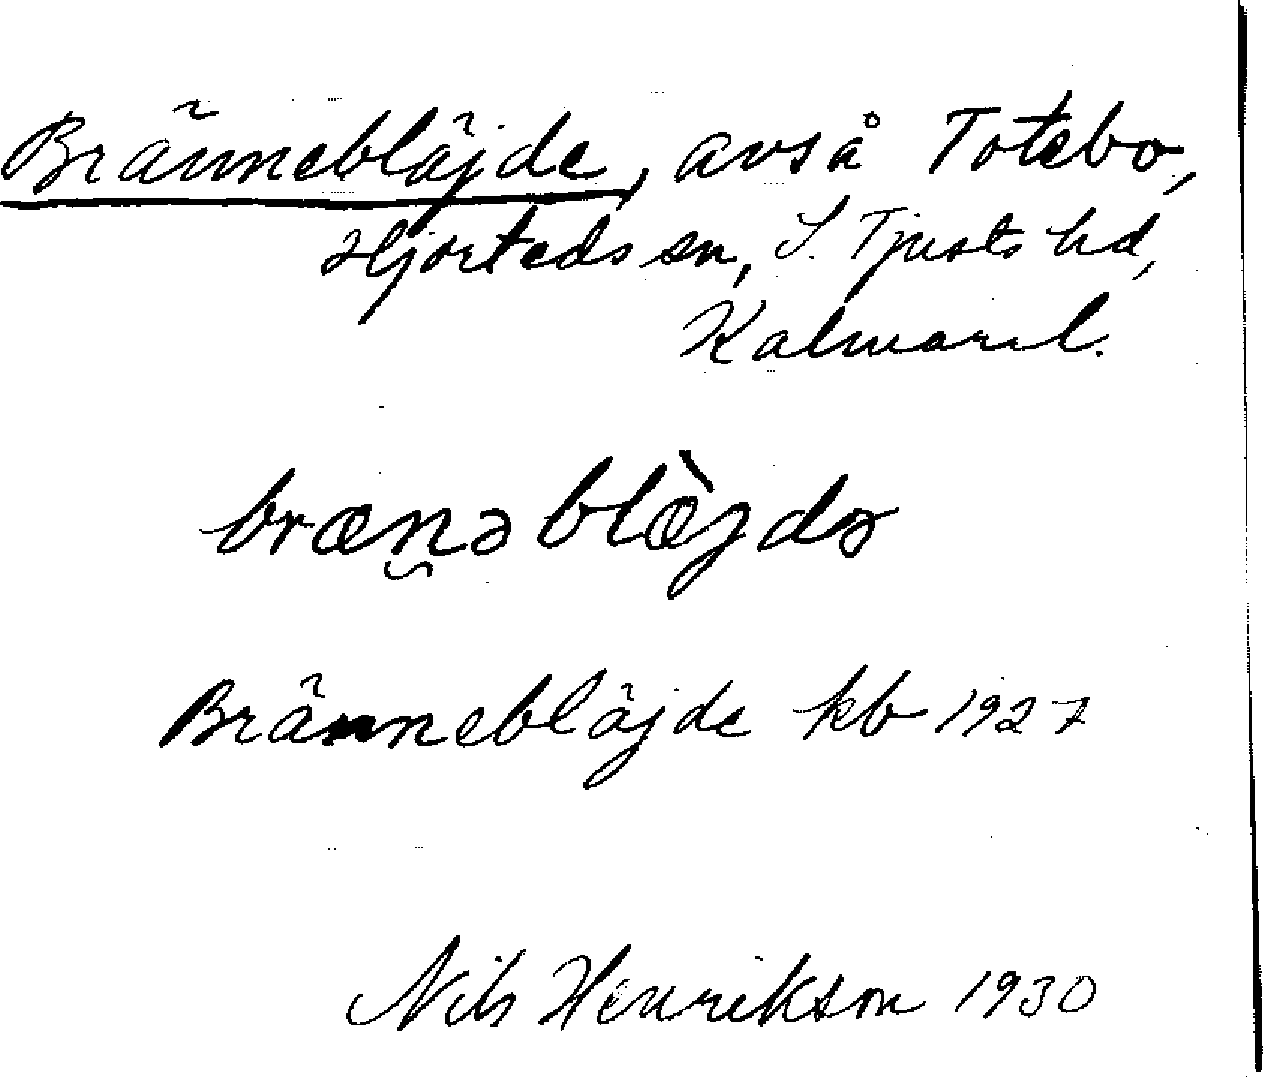 Brännebläjde, avså Totebo,
Hjorteds sn, S. Tjusts hd,
Kalmar l.
bræn̮ə blæ̀jdə
Brännebläjde kb 1927
Nils Henrikson 1930